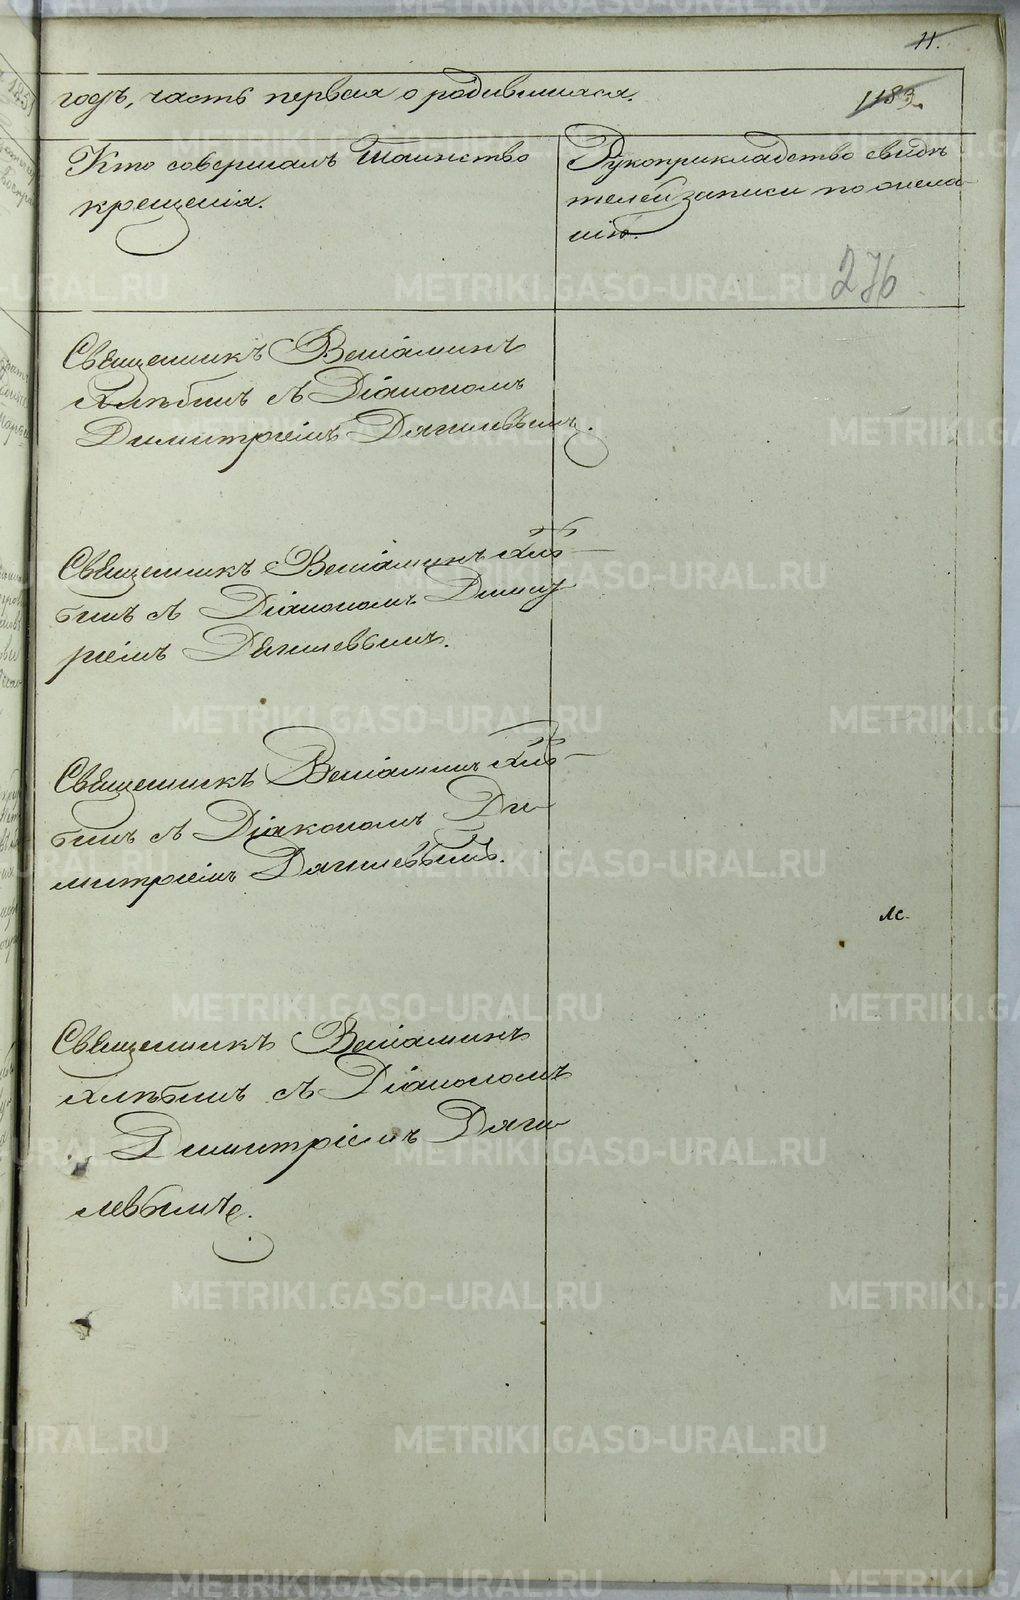 11.
годъ, часть первая о родившихся.
1183.
Кто совершалъ Таинство
крещенія.
Рукоприкладство свидѣ
телей записи по жела-
нію.
276
Священникъ Веніаминъ
Хлѣбинъ съ Діакономъ
Димитріемъ Дягилевымъ.
Священникъ Веніаминъ Хлѣ-
бинъ съ Діакономъ Димит
ріемъ Дягилевымъ.
Священникъ Веніаминъ Хлѣ-
бинъ съ Діакономъ Ди
митріемъ Дягилевымъ.
Священникъ Веніаминъ
Хлѣбинъ съ Діакономъ
Димитріемъ Дяги
левымъ.
METRIKI.GASO-URAL.RU